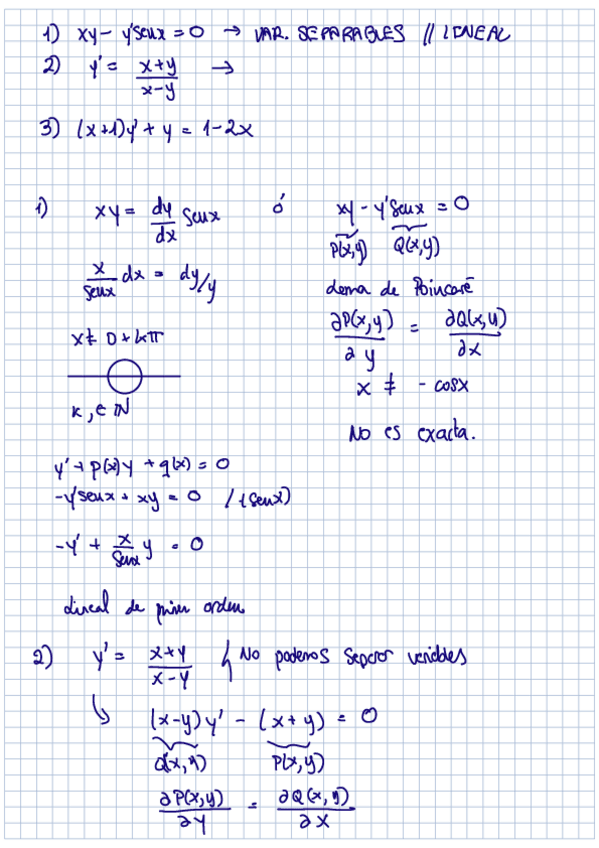 1) xy - y'senx = 0 → VAR. SEPARABLES // LINEAL
2) y' = x+y / x-y →
3) (x+1)y' + y = 1-2x
1) xy = dy/dx senx ó xy - y'senx = 0
P(x,y) Q(x,y)
x/senx dx = dy/y
Lema de Poincaré
x ≠ 0 + kπ
∂P(x,y)/∂y = ∂Q(x,y)/∂x
x ≠ - cosx
k, ∈ IN
No es exacta.
y' + p(x)y + q(x) = 0
-y'senx + xy = 0 /(senx)
-y' + x/senx y = 0
Lineal de primer orden
2) y' = x+y / x-y No podemos separar variables
↳ (x-y)y' - (x+y) = 0
Q(x,y) P(x,y)
∂P(x,y)/∂y = ∂Q(x,y)/∂x